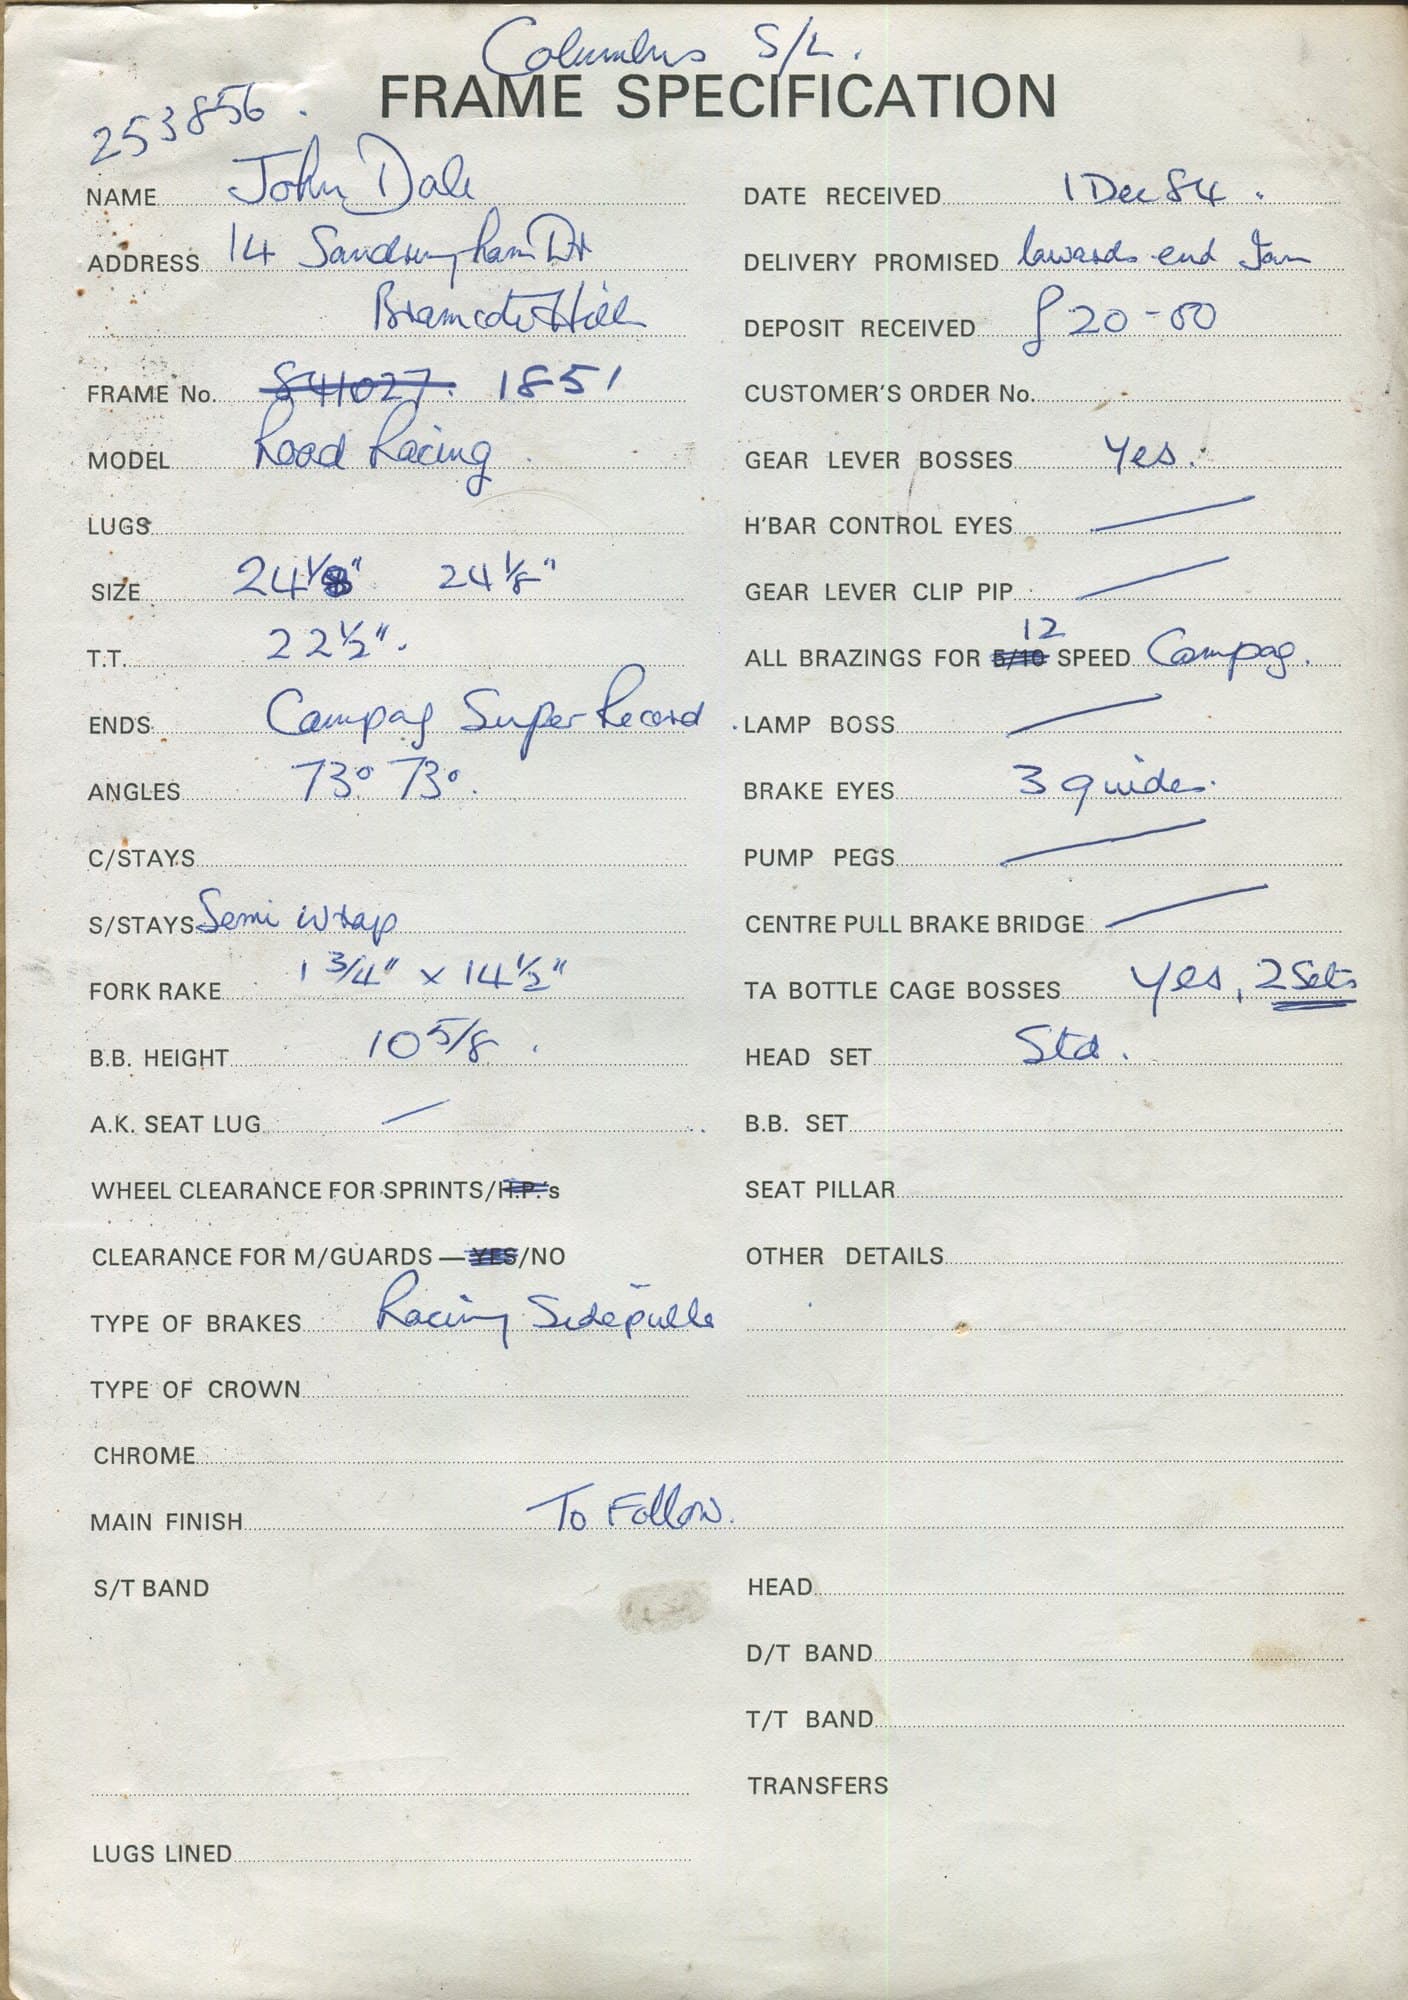 Columbus S/L.
FRAME SPECIFICATION
253856.
NAME John Dale
ADDRESS 14 Sandringham Dr
Bramcote Hills
FRAME No. 841027. 1851
MODEL Road Racing
LUGS
SIZE 24 1/8" 24 1/8"
T.T. 22 1/2".
ENDS Campag Super Record.
ANGLES 73° 73°.
C/STAYS
S/STAYS Semi Wrap
FORK RAKE 1 3/4" x 14 1/2"
B.B. HEIGHT 10 5/8.
A.K. SEAT LUG —
WHEEL CLEARANCE FOR SPRINTS/H.P.'s
CLEARANCE FOR M/GUARDS — YES/NO
TYPE OF BRAKES Racing Sidepulls
TYPE OF CROWN
CHROME
MAIN FINISH To Follow.
S/T BAND
LUGS LINED
DATE RECEIVED 1 Dec 84.
DELIVERY PROMISED towards end Jan
DEPOSIT RECEIVED £20-00
CUSTOMER'S ORDER No.
GEAR LEVER BOSSES Yes.
H'BAR CONTROL EYES —
GEAR LEVER CLIP PIP —
12
ALL BRAZINGS FOR 5/10 SPEED Campag.
LAMP BOSS —
BRAKE EYES 3 guides.
PUMP PEGS —
CENTRE PULL BRAKE BRIDGE —
TA BOTTLE CAGE BOSSES Yes, 2 Sets
HEAD SET Std.
B.B. SET
SEAT PILLAR
OTHER DETAILS
HEAD
D/T BAND
T/T BAND
TRANSFERS